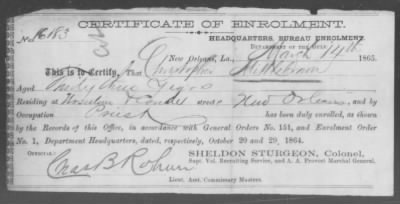 CERTIFICATE OF ENROLMENT.
No. 16183
HEADQUARTERS, BUREAU ENROLMENT,
DEPARTMENT OF THE GULF,
New Orleans, La., March 14th 1865.
This is to Certify, That Christopher
Aged Thirty Years
Residing at Ursuline street New Orleans, and by
Occupation Priest has been duly enrolled, as shown
by the Records of this Office, in accordance with General Orders No. 151, and Enrolment Order
No. 1, Department Headquarters, dated, respectively, October 20 and 29, 1864.
OFFICIAL:
SHELDON STURGEON, Colonel,
Supt. Vol. Recruiting Service, and A. A. Provost Marshal General.
Chas B
Lieut. Asst. Commissary Musters.